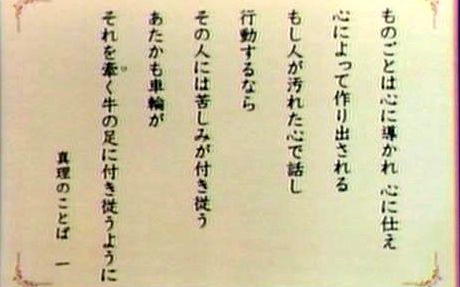 ものごとは心に導かれ 心に仕え
心によって作り出される
もし人が汚れた心で話し
行動するなら
その人には苦しみが付き従う
あたかも車輪が
それを牽く牛の足に付き従うように
真理のことば 一